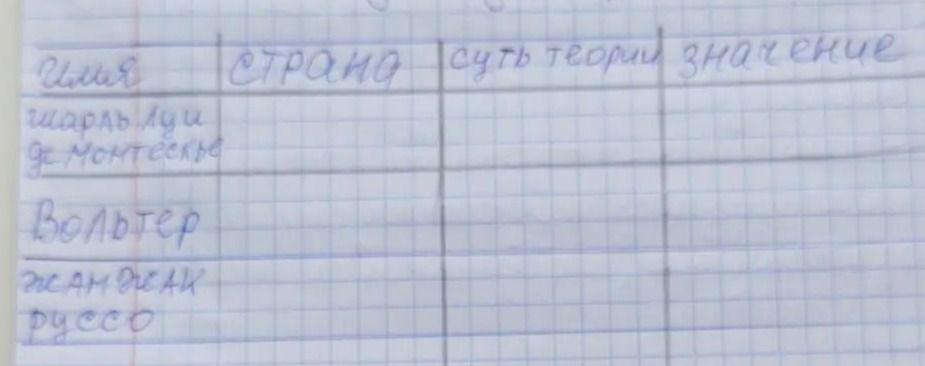 имя страна суть теории значение
шарль луи
де монтескье
Вольтер
жан жак
руссо